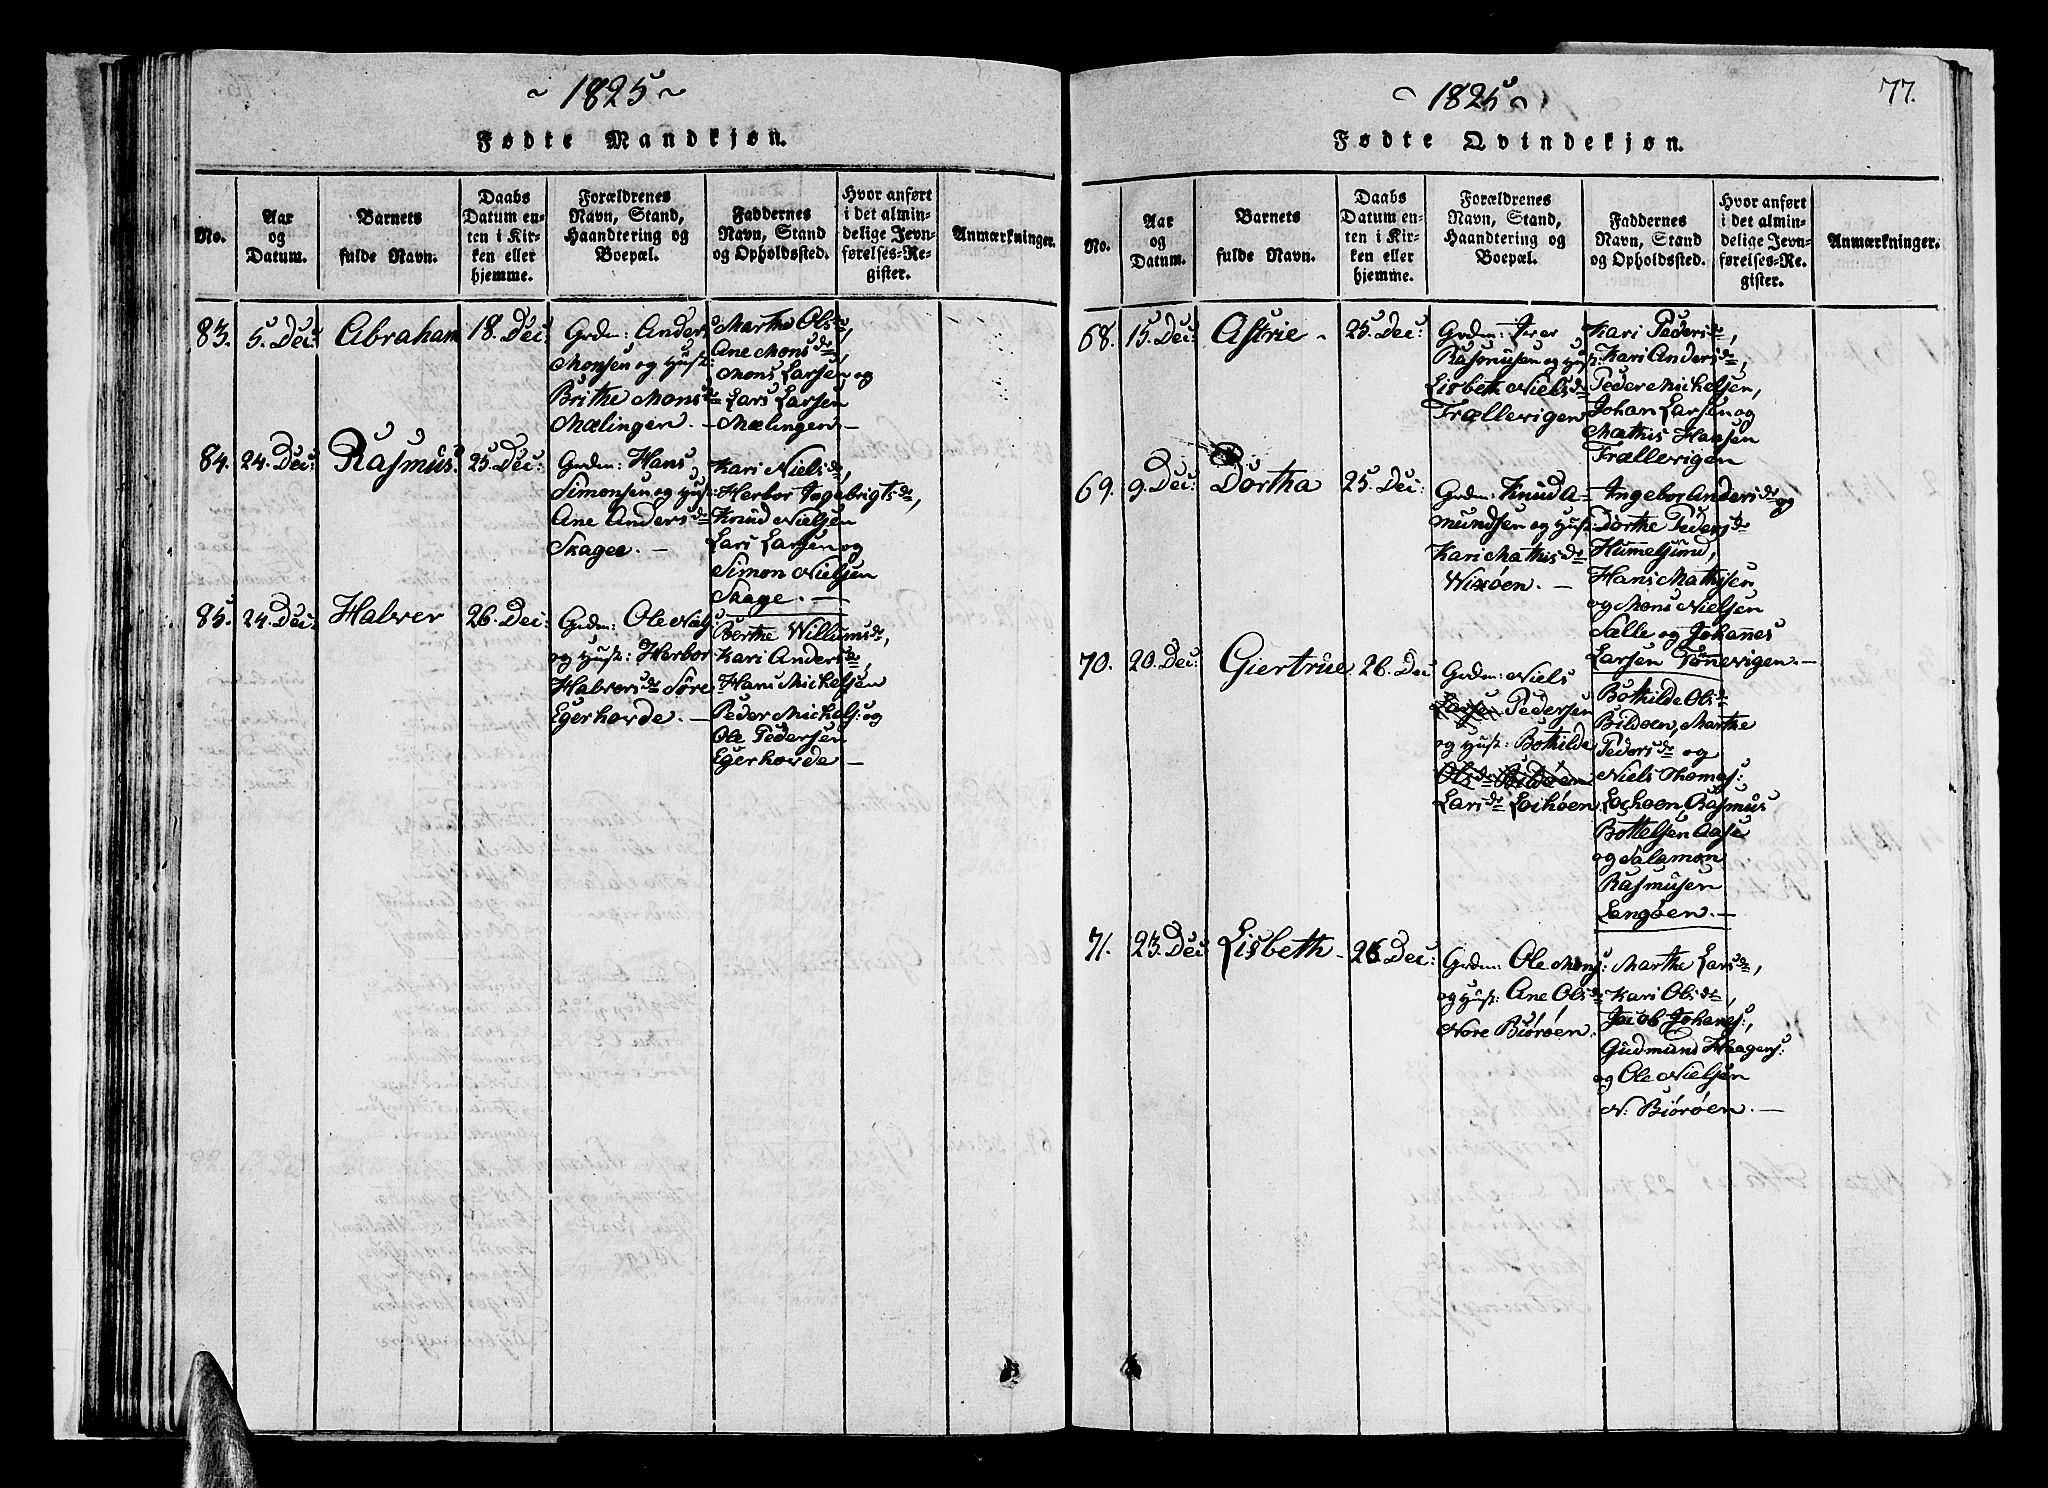 ~ 1825 ~
Fødte Mandkjøn.
No.
Aar
og
Datum.
Barnets
fulde Navn.
Daabs
Datum en-
ten i Kir-
ken eller
hjemme.
Forældrenes
Navn, Stand,
Haandtering og
Boepæl.
Faddernes
Navn, Stand
og Opholdssted.
Hvor anført
i det almin-
delige Jevn-
førelses-Re-
gister.
Anmærkninger.
83. 5. Dec: Abraham 18. Dec:
Grdm: Anders
Monsen og Hust:
Brithe Monsdr
Mælingen. —
Marthe Olsdr,
Ane Monsdr,
Mons Larsen og
Lars Larsen
Mælingen —
84. 24. Dec: Rasmus. 25. Dec:
Grdm: Hans
Simonsen og Hust:
Ane Andersdr
Skage. —
Kari Nielsdr,
Herbor Ingebrigtsdr,
Knud Nielsen
Lars Larsen og
Simon Nielsen
Skage. —
85. 24. Dec: Halver 26. Dec:
Grdm: Ole Niels:
og Hust: Herbor
Halversdr Søre
Egerhovde. —
Berthe Willumsdr,
Kari Andersdr,
Hans Mickelsen
Peder Mickels: og
Ole Pedersen
Egerhovde —
~ 1825 ~
77.
Fødte Qvindekjøn.
No.
Aar
og
Datum.
Barnets
fulde Navn.
Daabs
Datum en-
ten i Kir-
ken eller
hjemme.
Forældrenes
Navn, Stand,
Haandtering og
Boepæl.
Faddernes
Navn, Stand
og Opholdssted.
Hvor anført
i det almin-
delige Jevn-
førelses-Re-
gister.
Anmærkninger.
68. 15. Dec: Astrie - 25. Dec:
Grdm: Iver
Rasmusen og Hust:
Lisbeth Nielsdr
Trællevigen
Kari Pedersdr,
Kari Andersdr,
Peder Mickelsen,
Johan Larsen og
Mathis Hansen
Trællevigen
69. 9. Dec: Dortha 25. Dec:
Grdm: Knud A-
mundsen og Hust:
Kari Mathisdr
Wixøen. —
Ingebor Andersdr og
Dorthe Pedersdr
Hummelsund,
Hans Mathisen
og Mons Nielsen
Sælle og Johannes
Larsen Tønevigen. —
70. 20. Dec: Giertrue 26. Dec
Grdm: Niels
Larsen Pedersen
og Hust: Bothilde
Olsdr Bildøen
Larsdr Lochøen
Bothilde Olsdr
Bildøen, Marthe
Pedersdr og
Niels Thomas:
Lochøen, Rasmus
Bottelsen Aase
og Salamon
Rasmusen
Langøen. —
71. 23. Dec Lisbeth - 26. Dec:
Grdm: Ole Mons:
og Hust: Ane Olsdr
Nore Biørøen.
Marthe Larsdr,
Kari Olsdr,
Jacob Johanes:,
Gudmund Haagens:
og Ole Nielsen
N: Biørøen. —